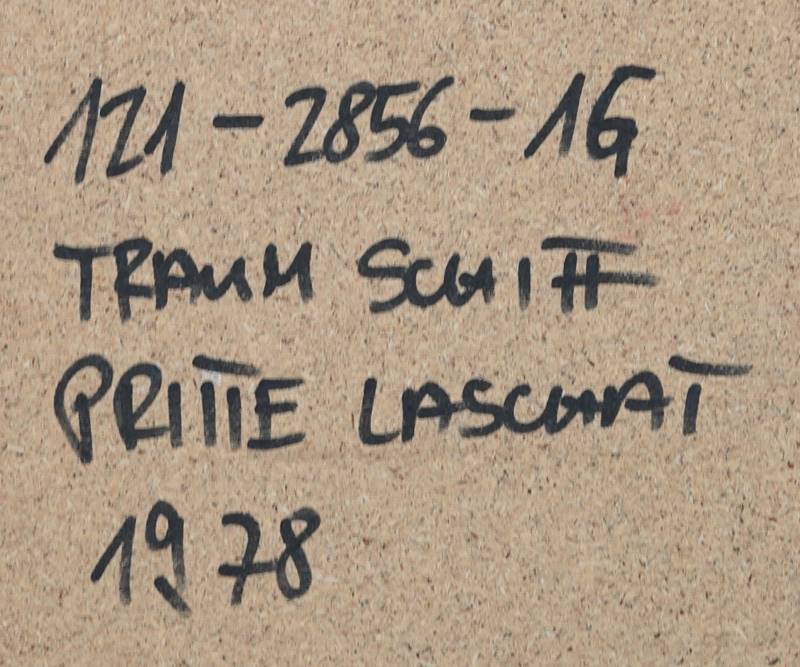 121-2856-1G
TRAUM SCHIFF
PRITTE LASCHAT
1978